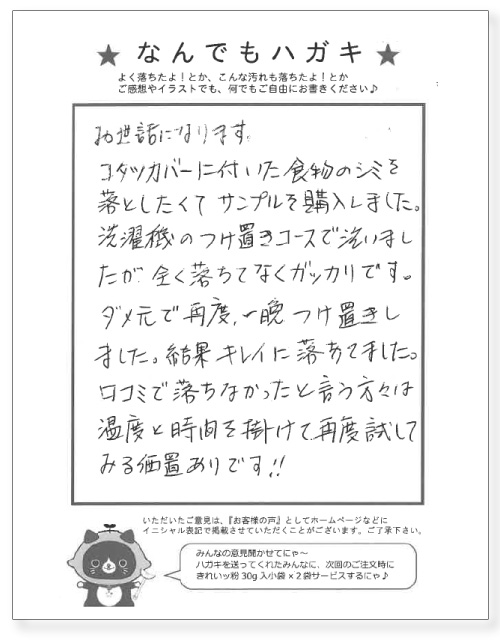 ★なんでもハガキ★
よく落ちたよ!とか、こんな汚れも落ちたよ!とか
ご感想やイラストでも、何でもご自由にお書きください♪
お世話になります。
コタツカバーに付いた食物のシミを
落としたくてサンプルを購入しました。
洗濯機のつけ置きコースで洗いまし
たが全く落ちてなくガッカリです。
ダメ元で再度、一晩つけ置きし
ました。結果キレイに落ちてました。
口コミで落ちなかったと言う方々は
温度と時間を掛けて再度試して
みる価置ありです!!
いただいたご意見は、『お客様の声』としてホームページなどに
イニシャル表記で掲載させていただくことがございます。ご了承下さい。
みんなの意見聞かせてにゃ〜
ハガキを送ってくれたみんなに、次回のご注文時に
きれいッ粉30g入小袋×2袋サービスするにゃ♪